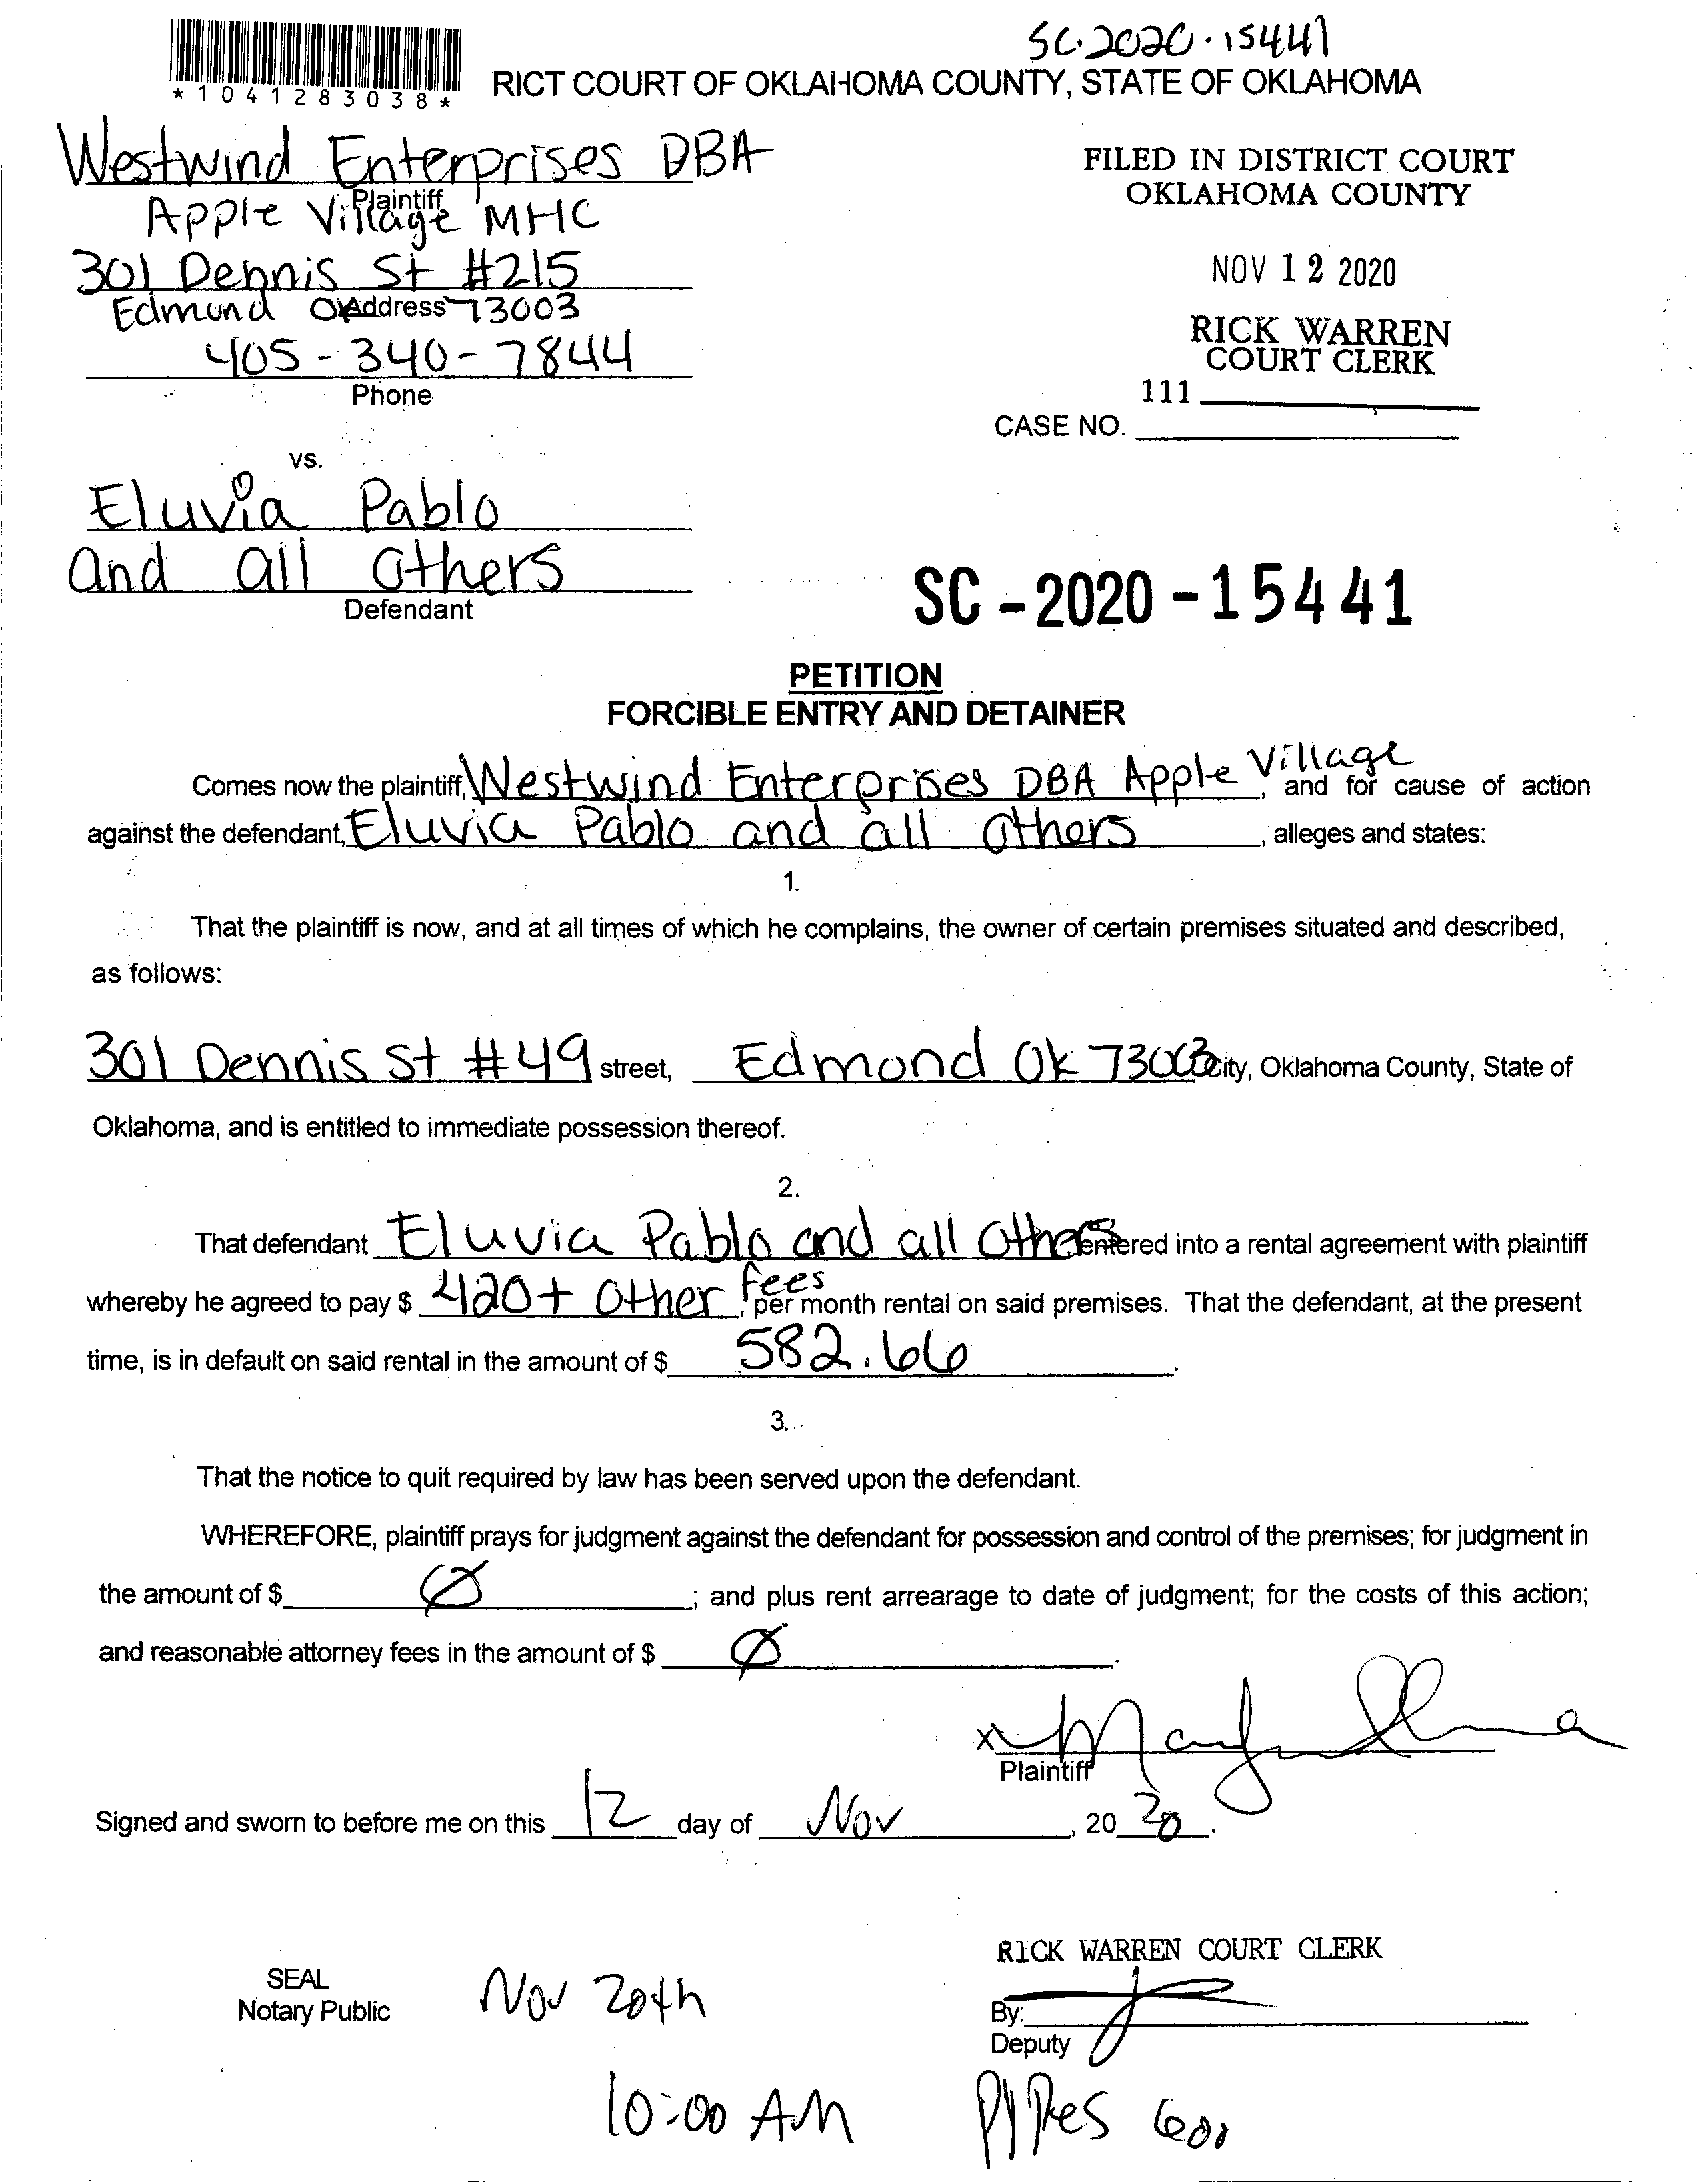 SC-2020-15441
*1041283038*
RICT COURT OF OKLAHOMA COUNTY, STATE OF OKLAHOMA
Westwind Enterprises DBA
Plaintiff
Apple Village MHC
301 Dennis St #215
Edmund OK 73003
Address
405-340-7844
Phone
FILED IN DISTRICT COURT
OKLAHOMA COUNTY
NOV 12 2020
RICK WARREN
COURT CLERK
111
CASE NO.
vs.
Eluvia Pablo
and all others
Defendant
SC-2020-15441
PETITION
FORCIBLE ENTRY AND DETAINER
Comes now the plaintiff, Westwind Enterprises DBA Apple Village, and for cause of action
against the defendant, Eluvia Pablo and all others, alleges and states:
1.
That the plaintiff is now, and at all times of which he complains, the owner of certain premises situated and described,
as follows:
301 Dennis St #49 street, Edmond Ok 73003 City, Oklahoma County, State of
Oklahoma, and is entitled to immediate possession thereof.
2.
That defendant Eluvia Pablo and all others entered into a rental agreement with plaintiff
whereby he agreed to pay $ 420+ Other fees, per month rental on said premises. That the defendant, at the present
time, is in default on said rental in the amount of $ 582.66.
3.
That the notice to quit required by law has been served upon the defendant.
WHEREFORE, plaintiff prays for judgment against the defendant for possession and control of the premises; for judgment in
the amount of $ Ø; and plus rent arrearage to date of judgment; for the costs of this action;
and reasonable attorney fees in the amount of $ Ø.
x
Plaintiff
Signed and sworn to before me on this 12 day of Nov, 20 20.
RICK WARREN COURT CLERK
SEAL
Notary Public
Nov 20th
By:
Deputy
10:00 AM